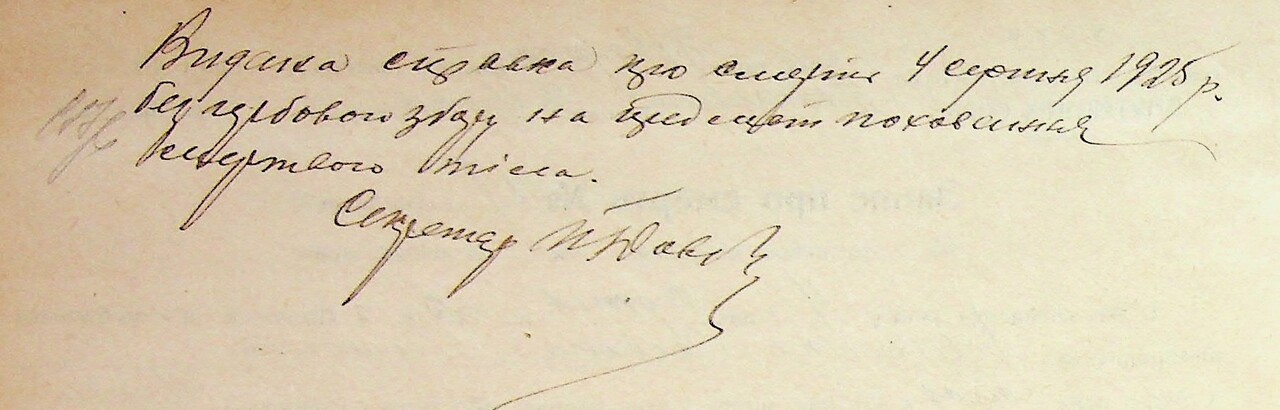 Видана справка про смерть 4 серпня 1925 р.
без гербового збору на предмет поховання
мертвого тіла.
Секретар